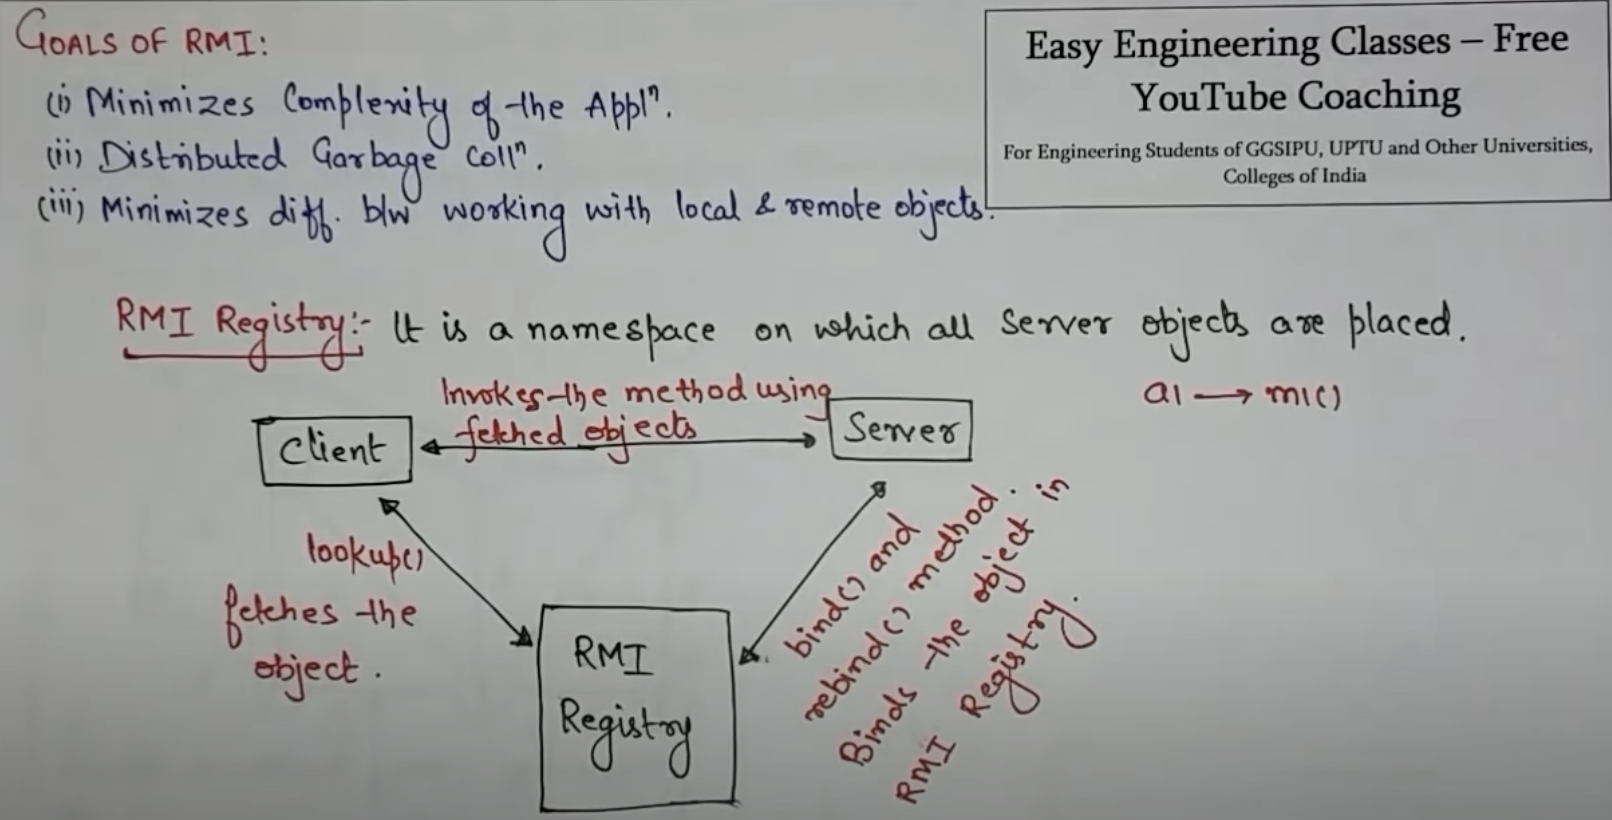 GOALS OF RMI:
(i) Minimizes Complexity of the Applⁿ.
(ii) Distributed Garbage Collⁿ.
(iii) Minimizes diff. b/w working with local & remote objects.
Easy Engineering Classes – Free
YouTube Coaching
For Engineering Students of GGSIPU, UPTU and Other Universities,
Colleges of India
RMI Registry:- It is a namespace on which all Server objects are placed.
a1 → m1()
Invokes the method using
fetched objects
Client
Server
lookup()
fetches the
object.
bind() and
rebind() method.
Binds the object in
RMI Registry.
RMI
Registry